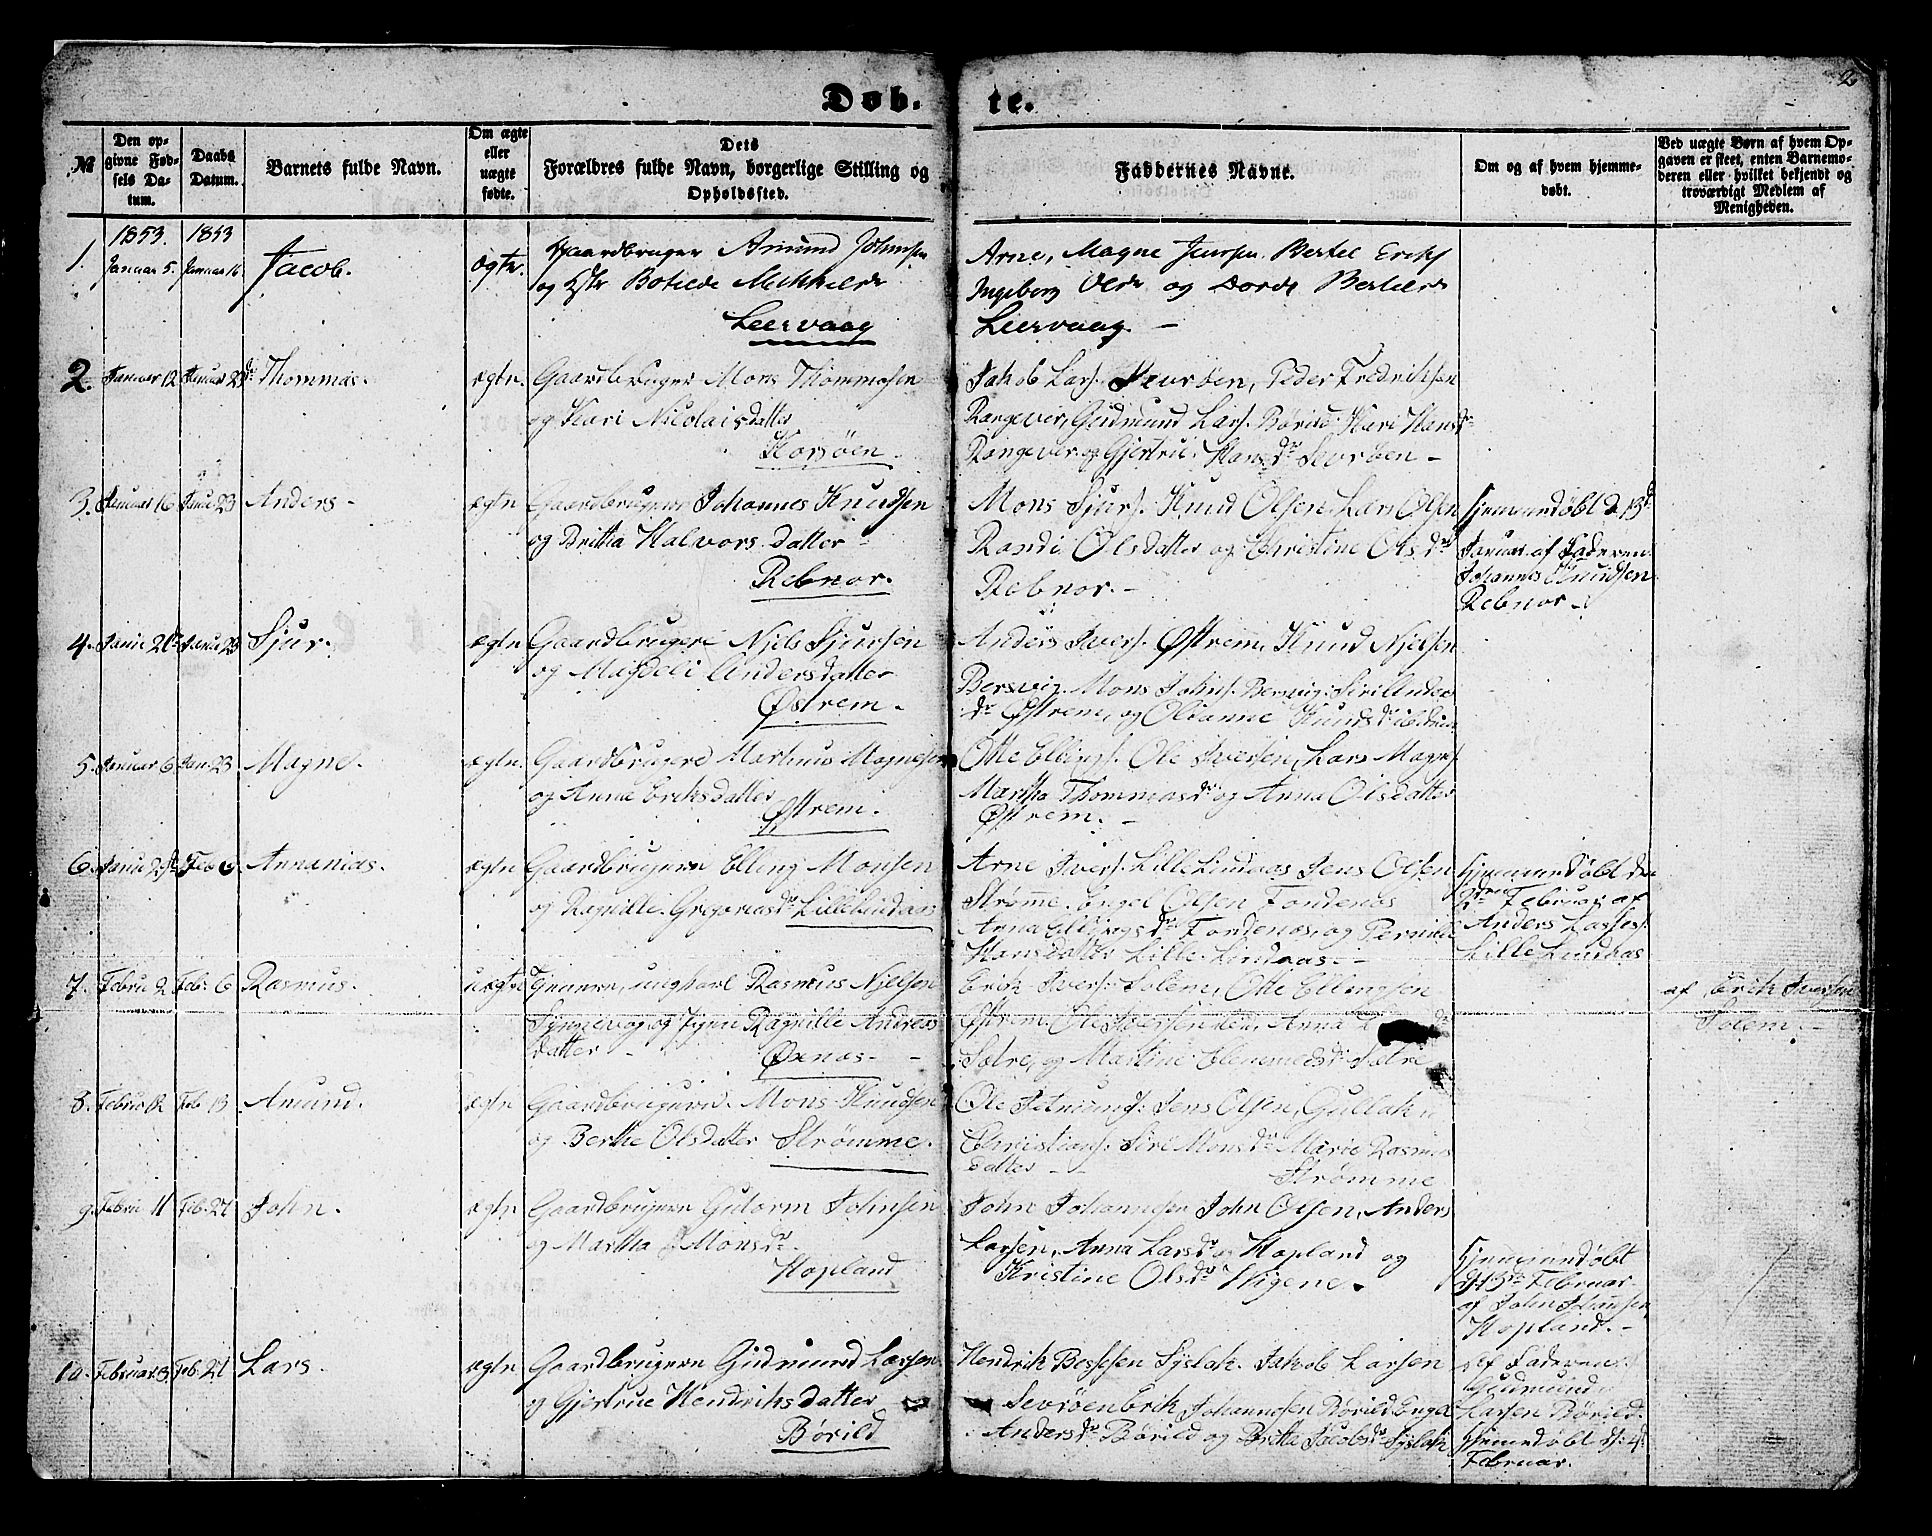 2
Døb-
te.
№
Den op-
givne Fød-
sels Da-
tum.
Daabs
Datum.
Barnets fulde Navn.
Om ægte
eller
uægte
fødte.
Dets
Forældres fulde Navn, borgerlige Stilling og
Opholdssted.
Faddernes Navne.
Om og af hvem hjemme-
døbt.
Ved uægte Børn af hvem Op-
gaven er skeet, enten Barnemo-
deren eller hvilket bekjendt og
troværdigt Medlem af
Menigheden.
1853. 1853
1. Januar 5. Januar 16 Jacob. ægte. Gaardbruger Amund Johnsen
og Botilde
Leervaag
Arne, Magne Jensen Bertel Eriks
Ingeborg Olsdr og Dorde
Leervaag. —
2. Januar 12 Januar 23 Thommas. ægte. Gaardbruger Mons Thommasen
og Kari Nicolaisdatter
Korsøen.
Jakob Lars. Sevrøen, Peder Fredriksen
Rongever, Gudmund Lars. Børild Kari Hansdr
Rongever og Gjertrue Hansdr Sevrøen —
3. Januar 16 Janu 23 Anders — ægte Gaardbrugere Johannes Knudsen
og Britha Halvors datter
Rebnor.
Mons Sjurs. Knud Olsen, Lars Olsen
Randi Olsdatter og Christine Olsdr
Rebnor. —
Hjemmedøbt d 13d
Januar af Faderen
Johannes Knudsen
Rebnor —
4. Janu Janu 23 Sjur. ægte Gaardbrugere Njels Sjursen
og Magdeli Andersdatter
Østrem.
Anders Ivers. Østrem, Knud Njelsen
Bersvig. Mons Johns. Bersvig. Siri Anders
dr Østrem, og Olianne Knudsdr
5. Januar 6 Jan. 23 Magne. ægte. Gaardbrugere Martinus Magnesen
og Anne Eriksdatter
Østrem.
Otte Ellings. Ole Iversen, Lars Magnes.
Martha Thommasdr og Anna Olsdatter
Østrem. —
6. Janu Feb 6 Annanias. ægte Gaardbrugere Elling Monsen
og Ragnille Gregoriasdr Lille Lindaas
Arne Ivers. Lille Lindaas Jens Olsen
Strømme. Engel Olsen Fondenæs
Anna Ellingsdr Fondenæs, og Pernille
Hansdatter Lille Lindaas. —
Hjemmedøbt den
2den Februar af
Anders Lasses.
Lille Lindaas
7. Febru 2 Feb: 6 Rasmus. uægte Tjenere, ungkarl Rasmus Njelsen
Synnevog og Pigen Ragnille Andreas
datter — Oxnæs. —
Erik Ivers. Solem, Otte Ellingsen
Østrem. Ole Iversen Anna
Sætre, og Martine Clemmedsdr Sætre
af Erik Iversen
Solem. —
8. Febru 12 Feb 13 Amund. ægte Gaardbrugere. Mons Knudsen
og Berthe Olsdatter Strømme.
Ole Jens Olsen, Gullak
Christians. Siri Monsdr Marie Rasmus
datter — Strømme
9. Febru 11 Feb. 27 John. ægte Gaardbrugere Gutorm Johnsen
og Martha Monsdr
Hopland
John Johannesen John Olsen, Anders
Larsen, Anna Larsdr Hopland og
Kristine Olsdr Vigene. —
Hjemmedøbt
d 13de Februar
af John Johansen
Hopland. —
10. Februar 3. Feb. 27 Lars. ægte Gaardbrugere Gudmund Larsen
og Gjertrue Hendriksdatter
Børild
Hendrik Syslak. Jakob Larsen
Sevrøen Erik Johannesen Børild Engel
Andersdr Børild og Britta Jacobsdr Syslak
af Faderen
Gudmund
Larsen Børild.
Hjemmedøbt d: 4d
Februar.